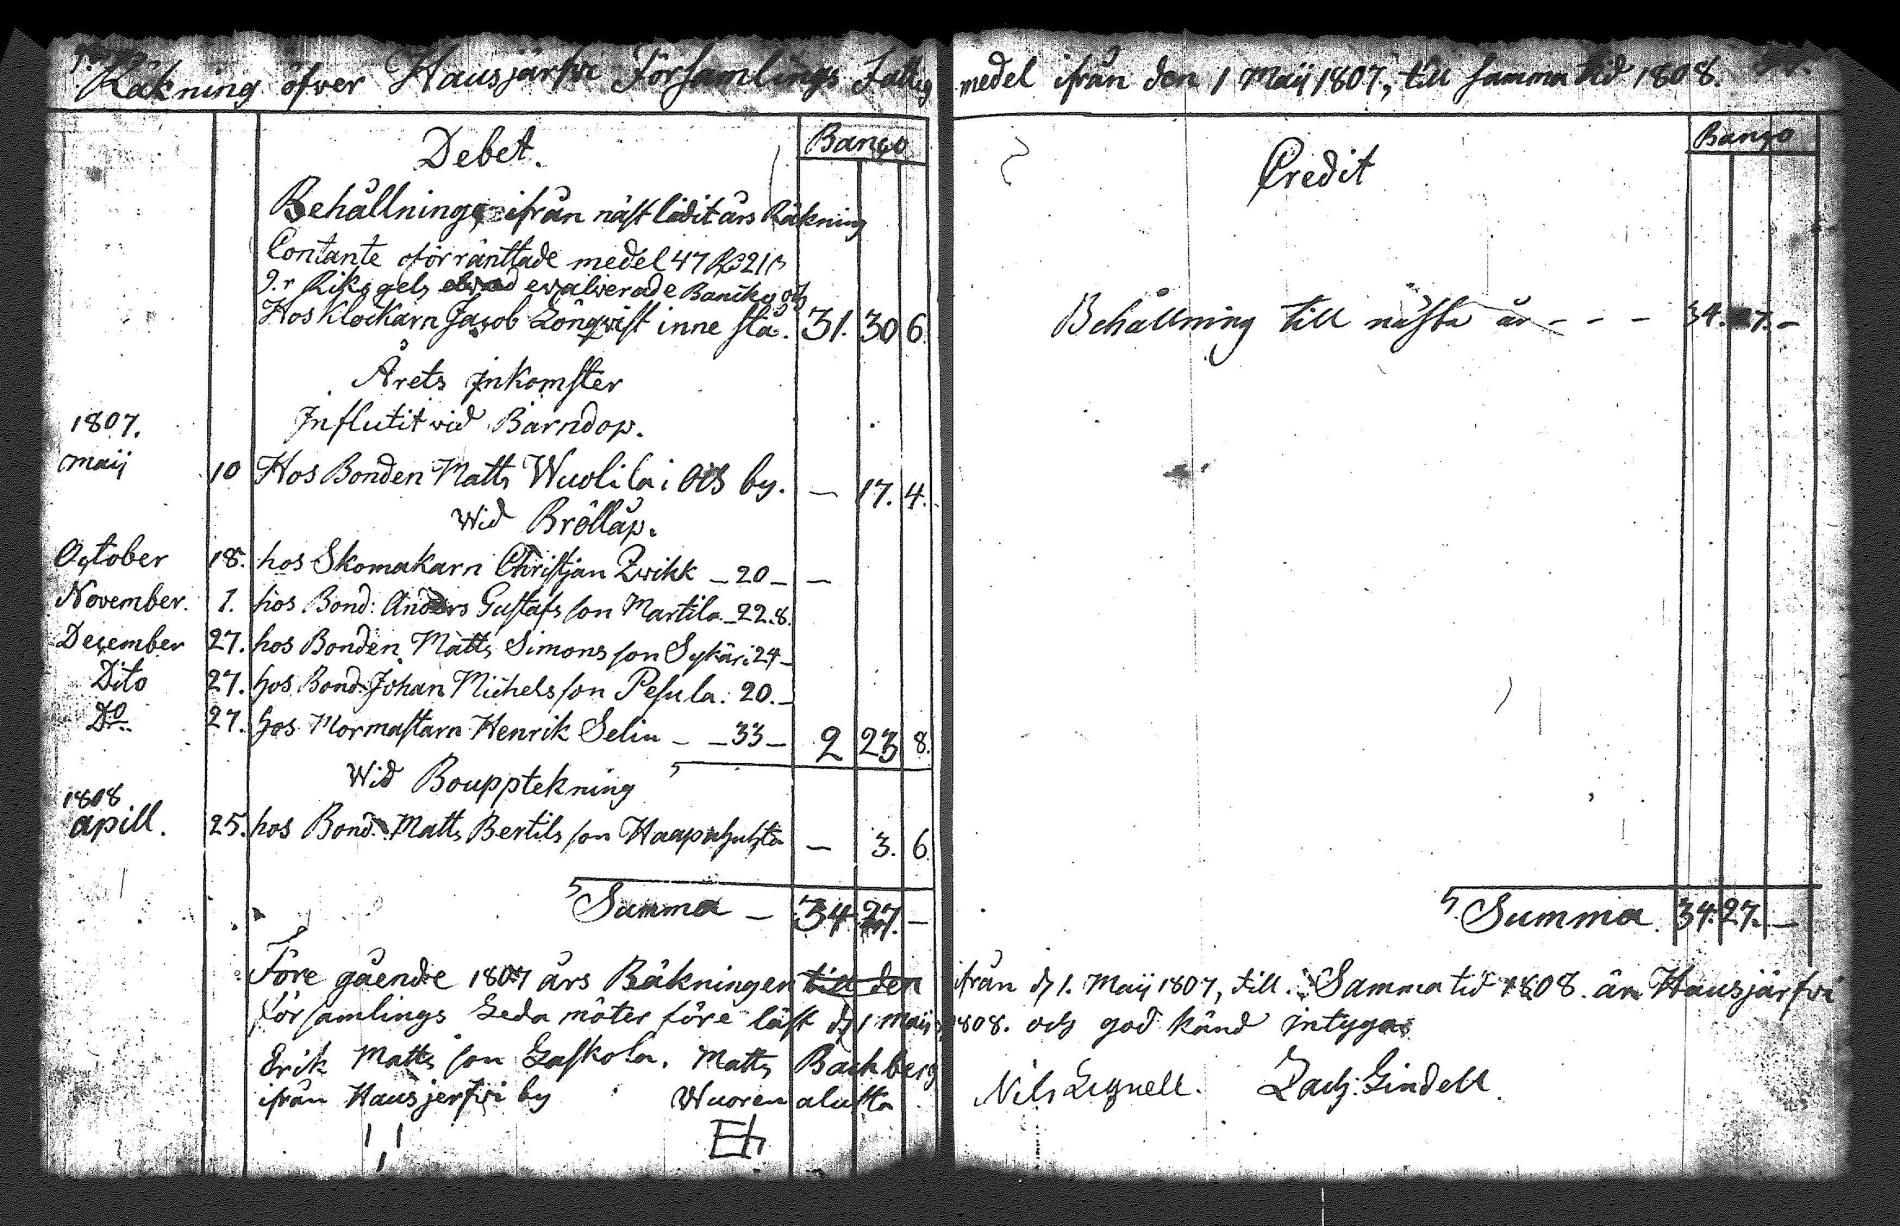 Räkning öfver Hausjärfvi Församlings Fattig medel ifrån den 1 Maij 1807, till samma tid 1808.
Debet.
Banço
Behållning ifrån näst ledit års Räkning
Contante oförränttade medel 47 R 21 ß
9.r Riksgels evalverade Banko och
Hos Klockarn Jacob Lönqvist inne stå. 31. 30 6.
Årets Inkomster
1807. Influtit vid Barndop.
Maij 10 Hos Bonden Matts Wuolila i Ois by. — 17. 4.
Wid Bröllåp.
October 18. hos Skomakarn Christjan Zwikk – 20 – —
November. 1. hos Bond: Anders Gustafs son Martila – 22. 8.
December 27. hos Bonden Matts Simons son Sykäri 24 –
Dito 27. hos Bond. Johan Michels son Pesula. 20. –
Do 27. hos Mormastarn Henrik Selin – – 33 – 2 23 8.
Wid Boupptekning
1808
Apill. 25. hos Bond. Matts Bertils son Haapahuhta — 3. 6
Summa — 34 27. —
Credit
Banço
Behållning till nästa år - - - 34. 7. —
Summa 34. 27. —
Före gående 1807 års Räkningen till den ifrån d 1. Maij 1807, till Samma tid 1808. är Hausjärfvi
Församlings Leda möter före läst d 1 Maij 1808. och god känd intygas
Erik Matts son Laskola. Matts Backberg Nils Lignell. Zach: Lindell.
ifrån Hausjerfvi by Wuorenalusta